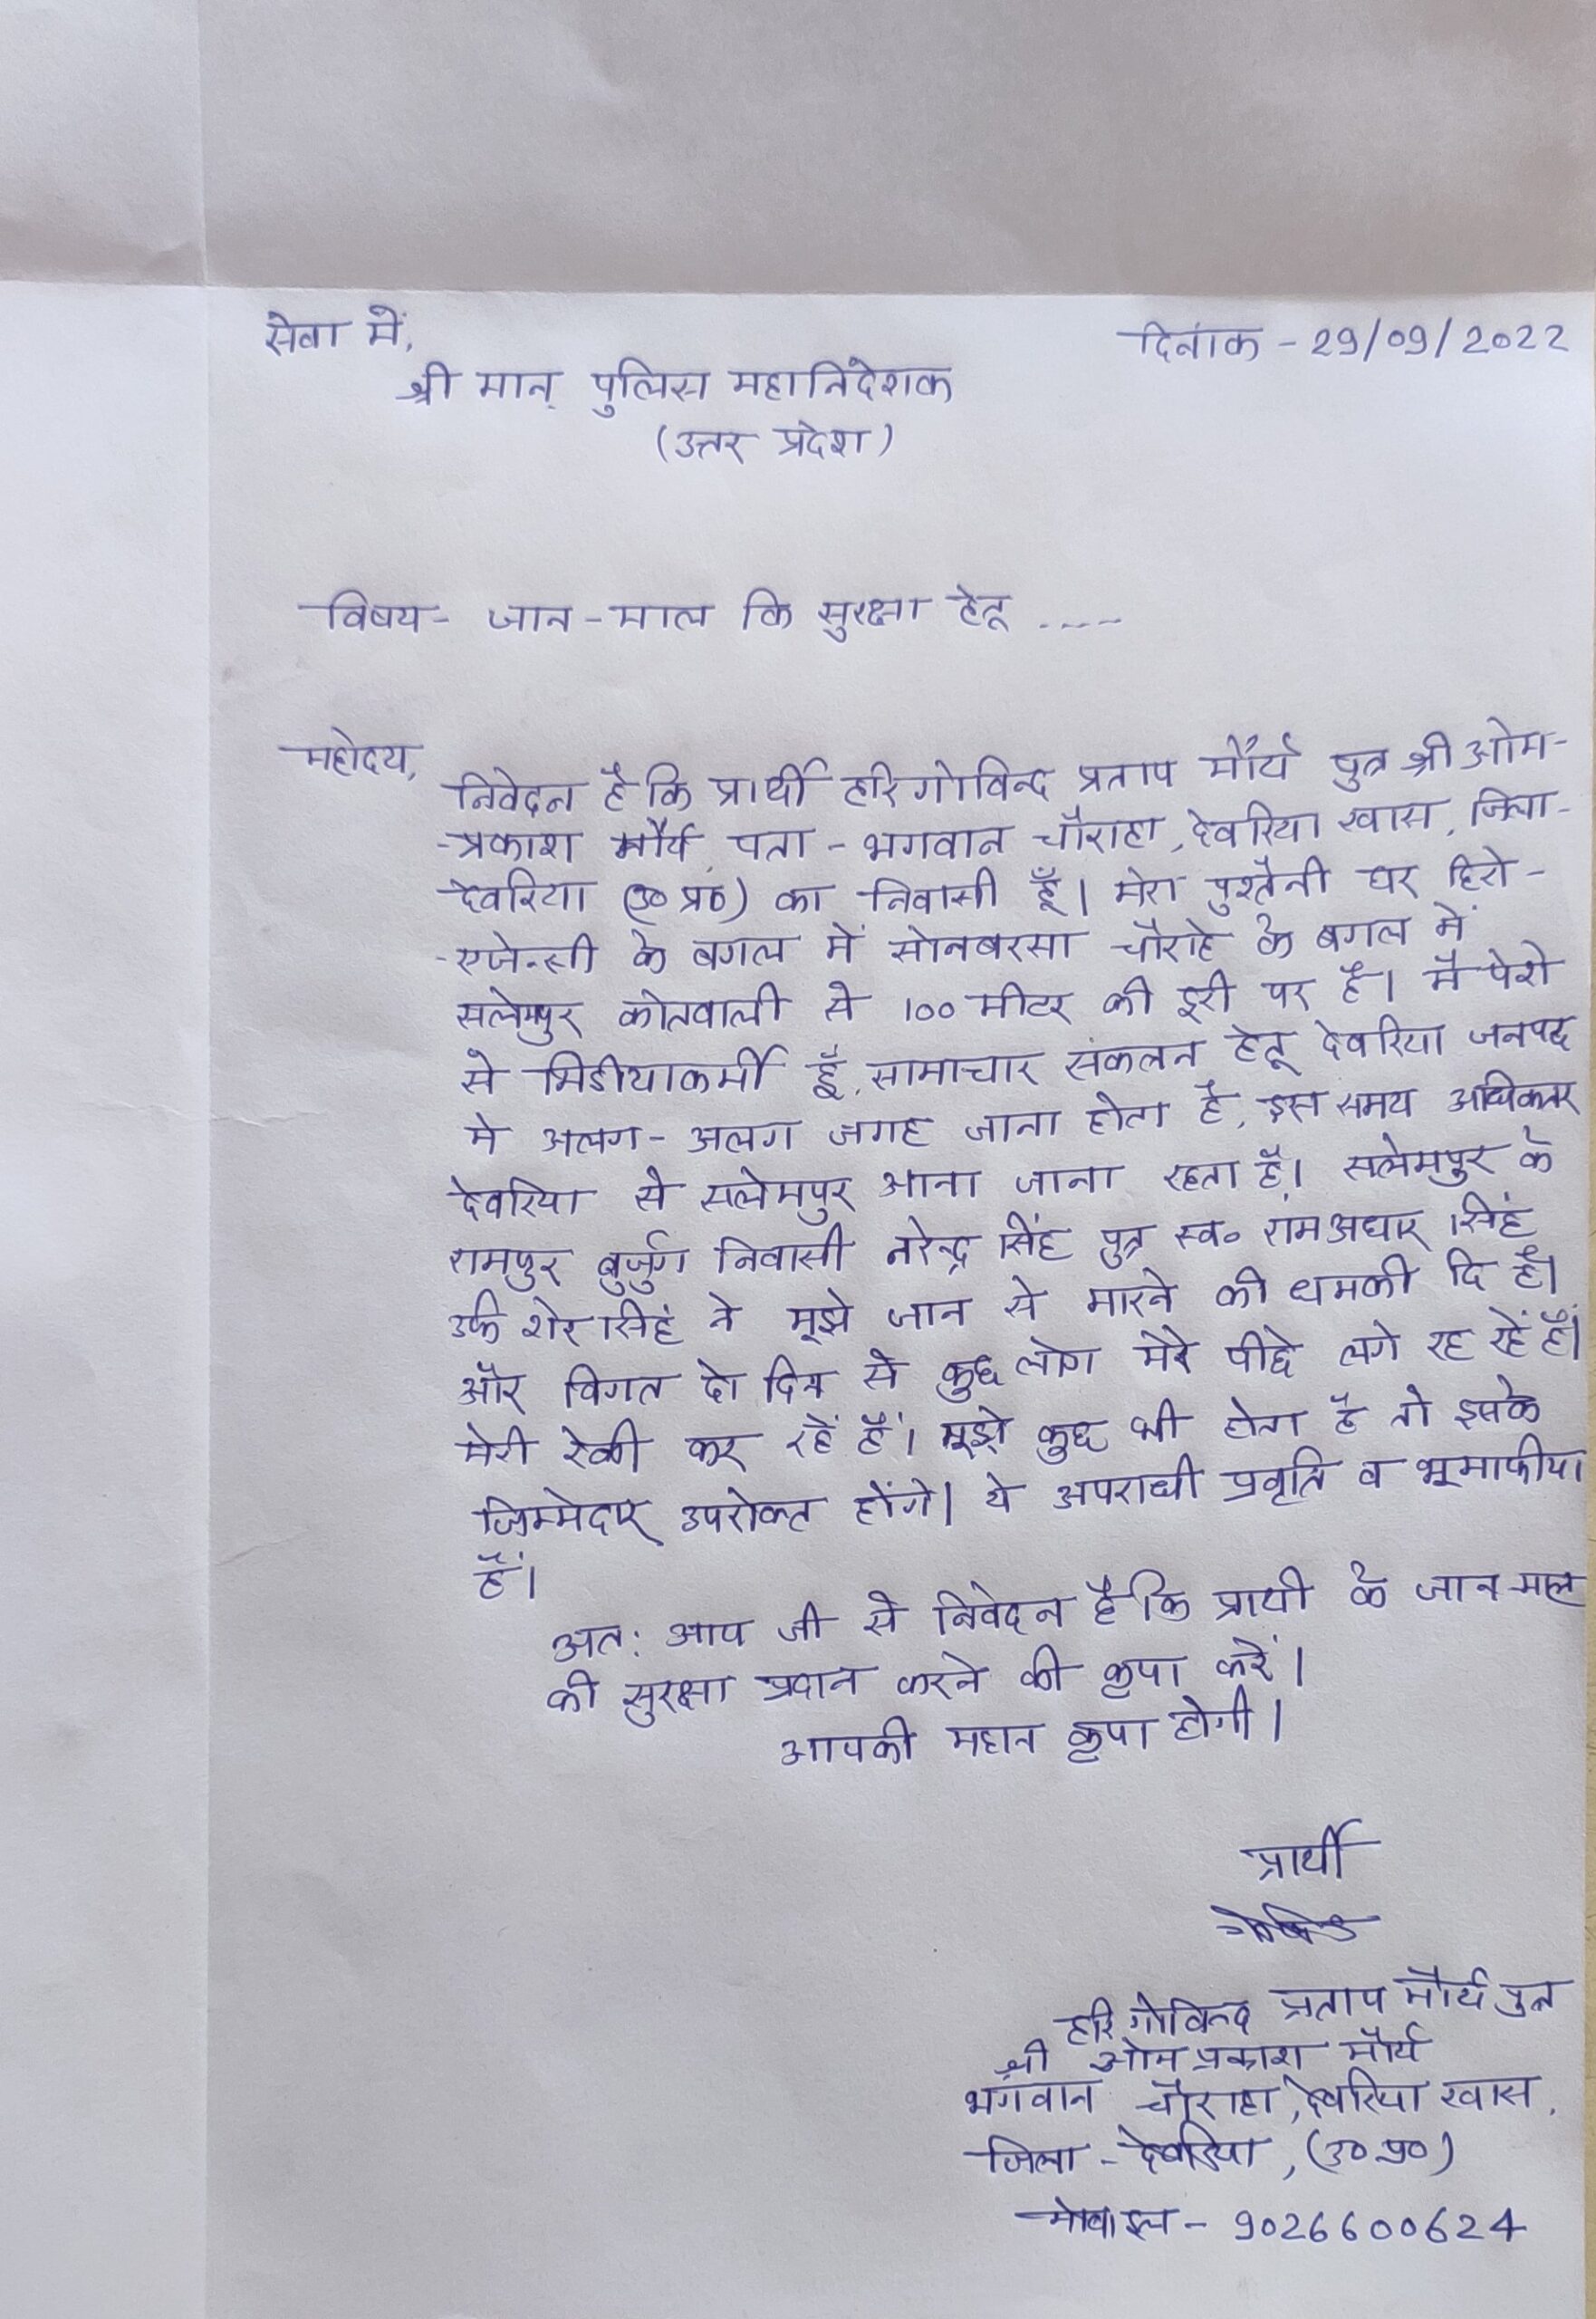 सेवा में,
दिनांक - 29/09/2022
श्री मान् पुलिस महानिदेशक
(उत्तर प्रदेश)
विषय - जान - माल कि सुरक्षा हेतू ....
महोदय,
निवेदन है कि प्रार्थी हरि गोविन्द प्रताप मौर्य पुत्र श्री ओम-
-प्रकाश मौर्य, पता - भगवान चौराहा, देवरिया खास, जिला-
देवरिया (उ० प्र०) का निवासी हूँ। मेरा पुश्तैनी घर हिरो-
-एजेन्सी के बगल में सोनबरसा चौराहे के बगल में
सलेमपुर कोतवाली से 100 मीटर की दूरी पर है। मै पेशे
से मिडीयाकर्मी हूँ, सामाचार संकलन हेतू देवरिया जनपद
मे अलग - अलग जगह जाना होता है, इस समय अधिकतर
देवरिया से सलेमपुर आना जाना रहता है। सलेमपुर के
रामपुर बुर्जुग निवासी नरेन्द्र सिंह पुत्र स्व० रामअधार सिंह
उर्फ शेर सिंह ने मूझे जान से मारने की धमकी दि है।
और विगत दो दिन से कुछ लोग मेरे पीछे लगे रह रहें हैं।
मेरी रेकी कर रहें हैं। मूझे कुछ भी होता है तो इसके
जिम्मेदार उपरोक्त होंगे। ये अपराधी प्रवृति व भूमाफीया
हैं।
अत: आप जी से निवेदन है कि प्रार्थी के जान-माल
की सुरक्षा प्रदान करने की कृपा करें।
आपकी महान कृपा होगी।
प्रार्थी
हरि गोविन्द प्रताप मौर्य पुत्र
श्री ओम प्रकाश मौर्य
भगवान चौराहा, देवरिया खास,
जिला - देवरिया, (उ० प्र०)
मोबाइल - 9026600624